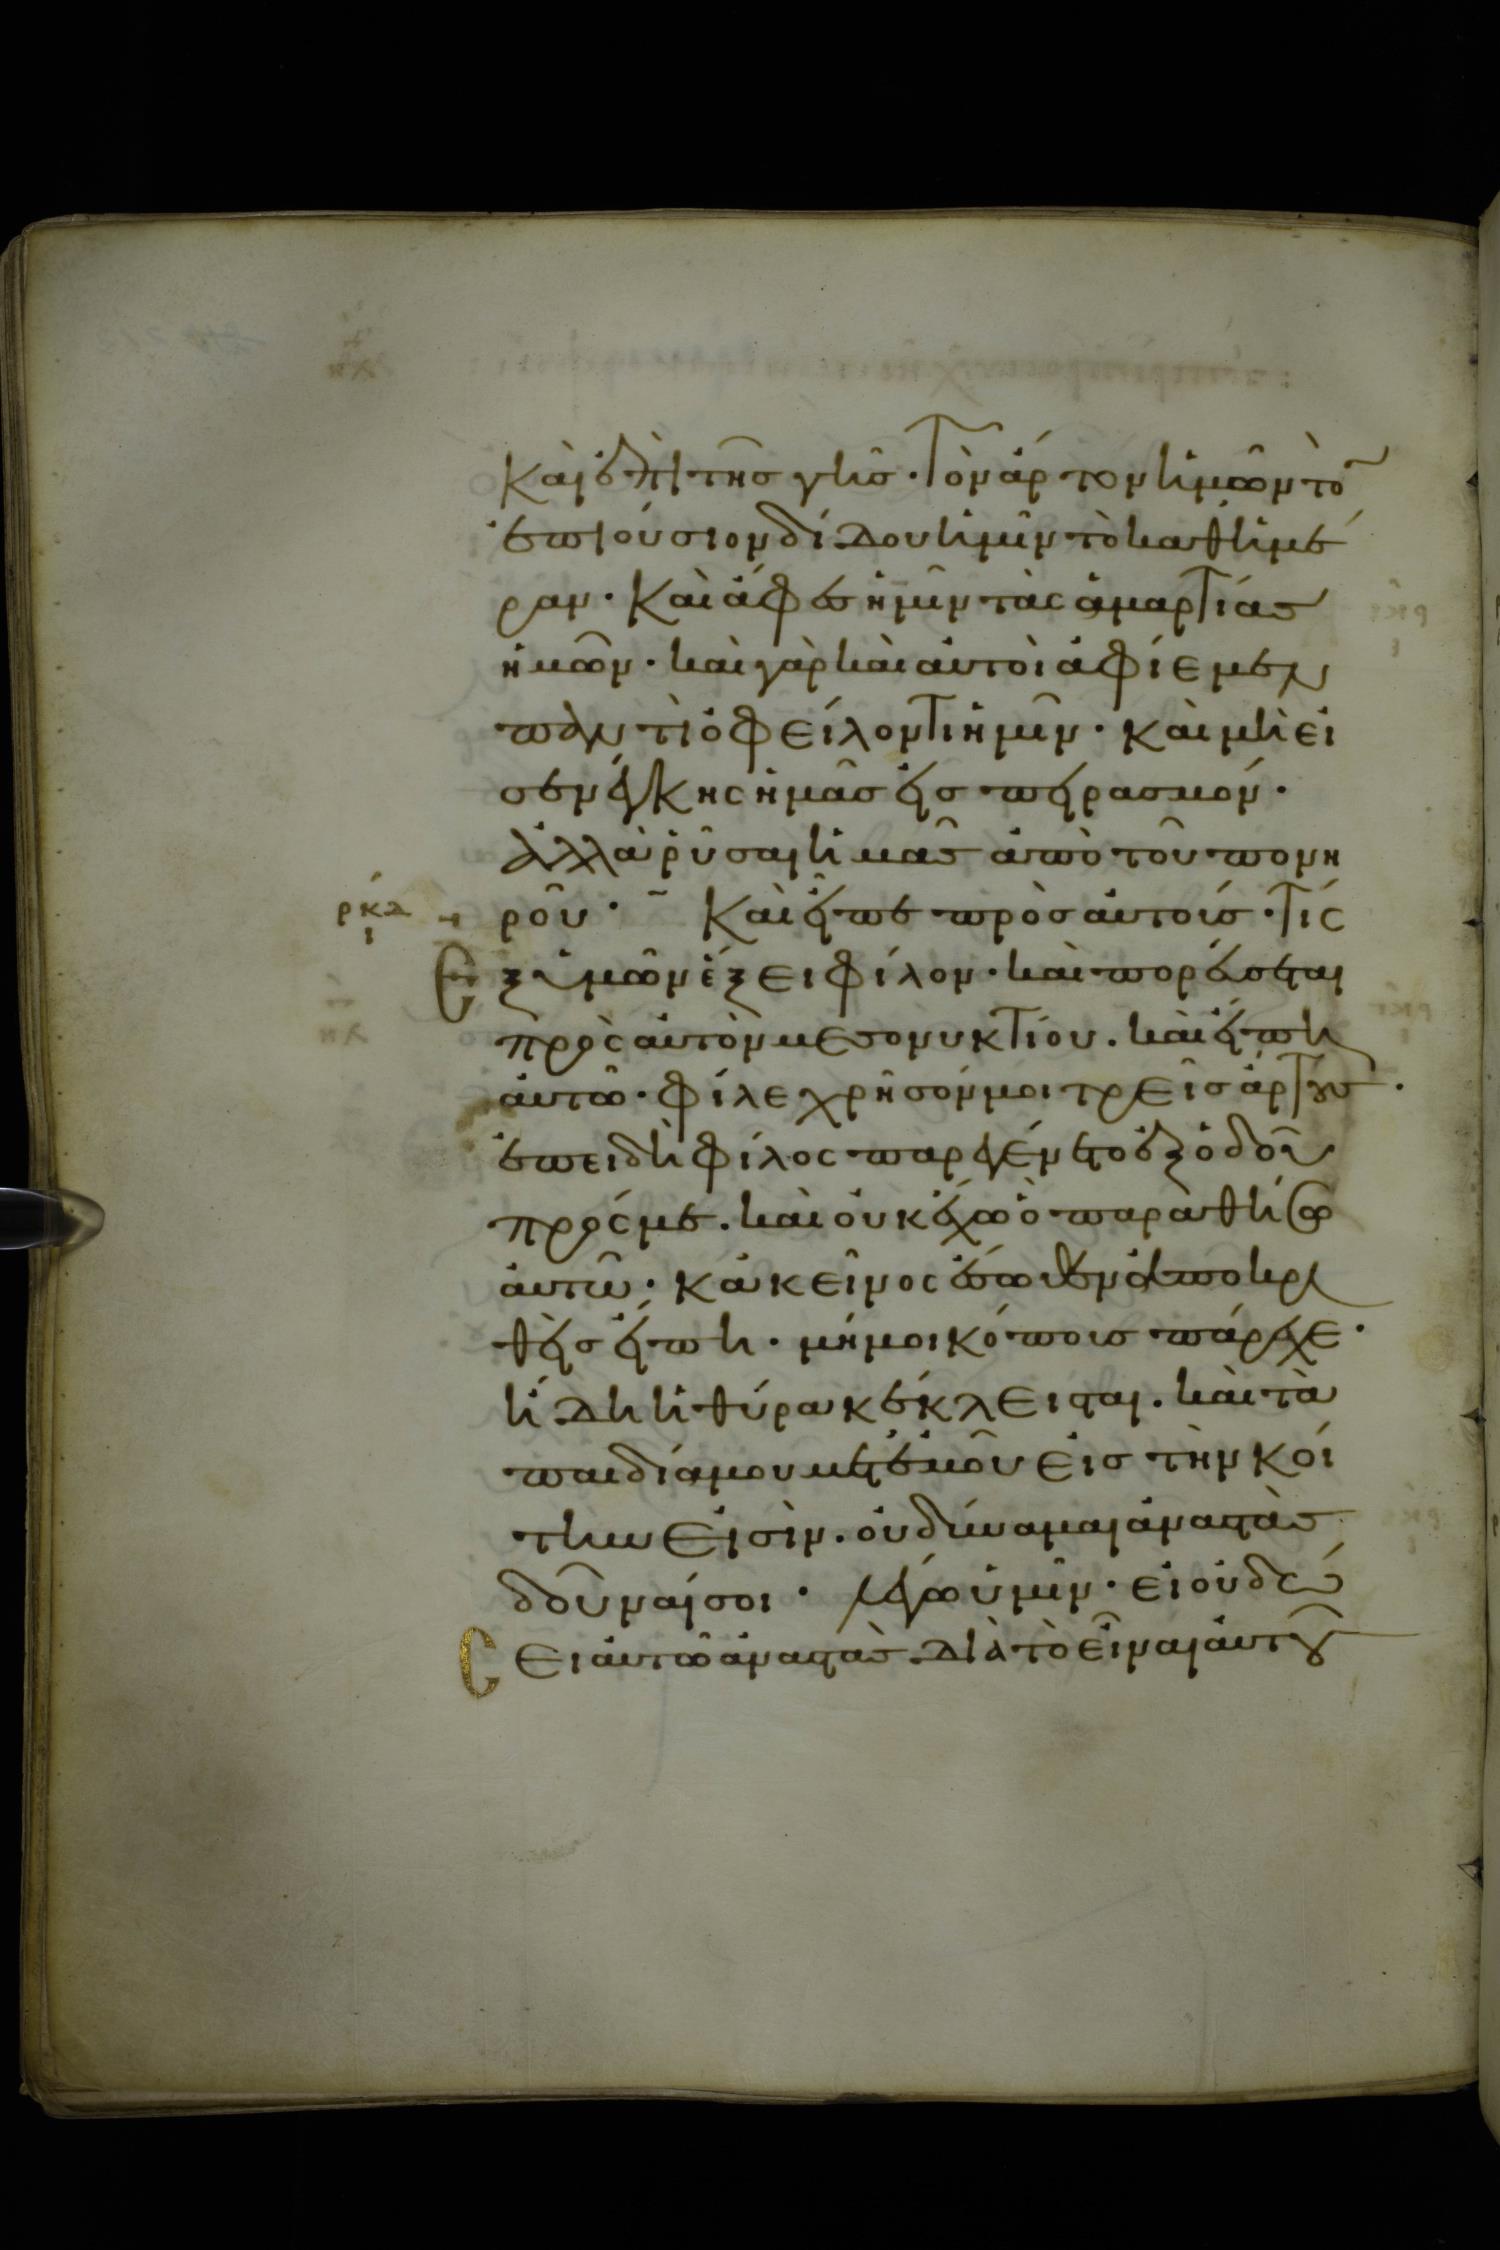 καὶ ἐπὶ τῆς γῆς· Τὸν ἄρτον ἡμῶν τὸ
ἐπιούσιον δίδου ἡμῖν τὸ καθ ἡμέ
ραν· Καὶ ἄφες ἡμῖν τὰς ἁμαρτίας
ἡμῶν· καὶ γὰρ καὶ αὐτοὶ ἀφίεμεν
παντὶ ὀφείλοντι ἡμῖν· καὶ μὴ εἰ
σενέγκης ἡμᾶς εἰς πειρασμόν·
ἀλλὰ ῥῦσαι ἡμᾶς ἀπὸ τοῦ πονη
ρκδ ροῦ· Καὶ εἶπε πρὸς αὐτοίς· Τίς
ι
Ἐξ ὑμῶν ἕξει φίλον· καὶ πορεύσεται
πρὸς αὐτὸν μεσονυκτίου· καὶ εἴπη
αὐτῶ· φίλε χρῆσόν μοι τρεῖς ἄρτους·
ἐπειδὴ φίλος παρεγένετο ἐξ ὁδοῦ
πρός με· καὶ οὐκ ἔχω ὃ παραθήσω
αὐτῶ· κἀκεῖνος ἔσωθεν ἀποκρι
θεὶς εἴπη· μή μοι κόπους πάρεχε·
ἤδη ἡ θύρα κέκλεισται· καὶ τὰ
παιδία μου μετ ἐμοῦ εἰς τὴν κοί
την εἰσὶν· οὐ δύναμαι ἀναστὰς
δοῦναί σοι· λέγω ὑμῖν· εἰ οὐ δώ
σ ει αὐτῶ ἀναστὰς διὰ τὸ εἶναι αὐτοῦ